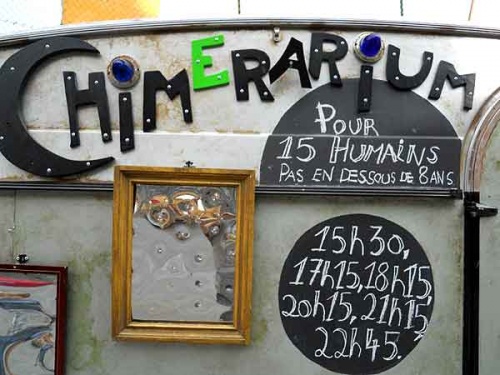 CHIMERARIUM
POUR
15 HUMAINS
PAS EN DESSOUS DE 8 ANS
15h30,
17h15, 18h15,
20h15, 21h15,
22h45.